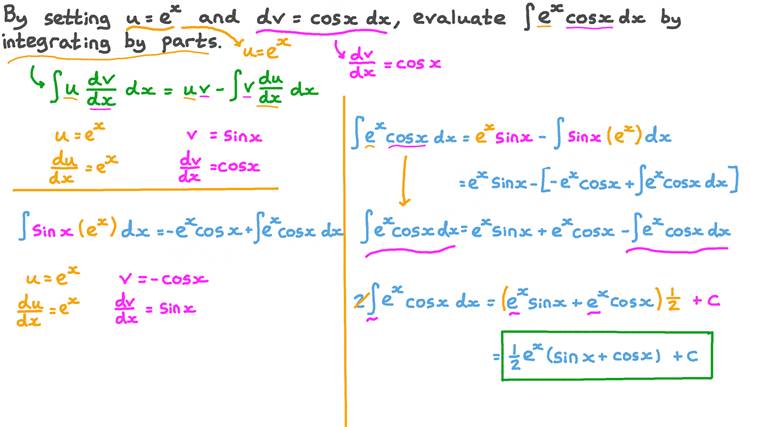 By setting u = eˣ and dv = cosx dx, evaluate ∫eˣ cosx dx by
integrating by parts.
u=eˣ
dv/dx = cosx
∫u dv/dx dx = uv - ∫v du/dx dx
u=eˣ v = sinx
du/dx = eˣ dv/dx = cosx
∫sinx (eˣ) dx = -eˣcosx + ∫eˣcosx dx
u=eˣ v = -cosx
du/dx = eˣ dv/dx = sinx
∫eˣcosx dx = eˣsinx - ∫sinx (eˣ) dx
= eˣsinx - [-eˣcosx + ∫eˣcosx dx]
∫eˣcosx dx = eˣsinx + eˣcosx - ∫eˣcosx dx
2∫eˣcosx dx = (eˣsinx + eˣcosx) 1/2 + c
= 1/2 eˣ (sinx + cosx) + c